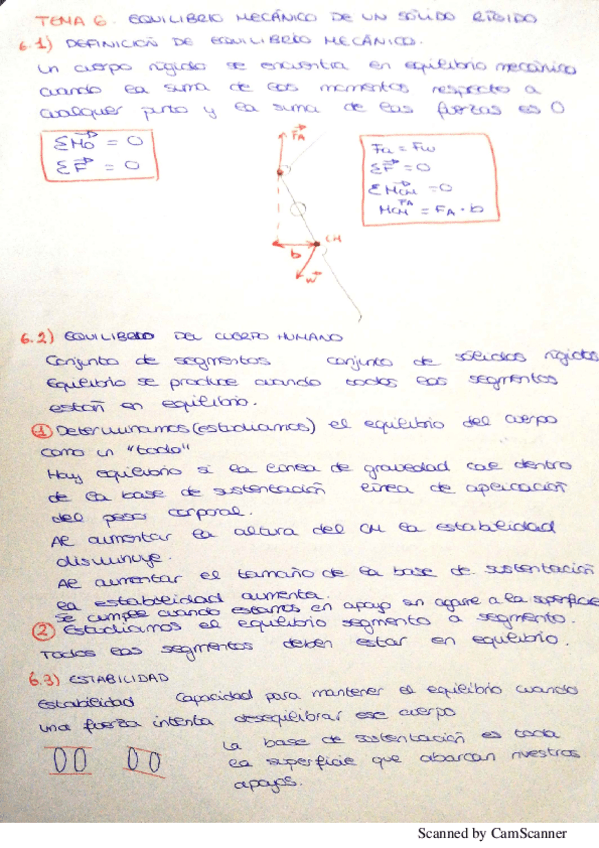 TEMA 6. EQUILIBRIO MECÁNICO DE UN SÓLIDO RÍGIDO
6.1) DEFINICIÓN DE EQUILIBRIO MECÁNICO.
Un cuerpo rígido se encuentra en equilibrio mecánico
cuando la suma de los momentos respecto a
cualquier punto y la suma de las fuerzas es 0
ΣMo = 0
ΣF = 0
FA
CM
b
W
Fa = Fw
ΣF = 0
ΣMCM = 0
MCM FA = FA · b
6.2) EQUILIBRIO DEL CUERPO HUMANO
Conjunto de segmentos conjunto de sólidos rígidos
Equilibrio se produce cuando todos los segmentos
están en equilibrio.
1 Determinamos (estudiamos) el equilibrio del cuerpo
como un "todo"
Hay equilibrio si la línea de gravedad cae dentro
de la base de sustentación línea de aplicación
del peso corporal.
Al aumentar la altura del CM la estabilidad
disminuye.
Al aumentar el tamaño de la base de sustentación
la estabilidad aumenta.
se cumple cuando estamos en apoyo sin agarre a la superficie
2 Estudiamos el equilibrio segmento a segmento.
Todos los segmentos deben estar en equilibrio.
6.3) ESTABILIDAD
Estabilidad Capacidad para mantener el equilibrio cuando
una fuerza intenta desequilibrar ese cuerpo
La base de sustentación es toda
la superficie que abarcan nuestros
apoyos.
Scanned by CamScanner